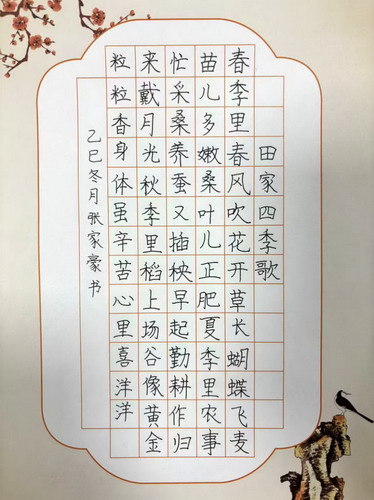 田家四季歌
春季里春风吹花开草长蝴蝶飞麦
苗儿多嫩桑叶儿正肥夏季里农事
忙采桑养蚕又插秧早起勤耕作归
来戴月光秋季里稻上场谷像黄金
粒粒香身体虽辛苦心里喜洋洋
乙巳冬月张家豪书